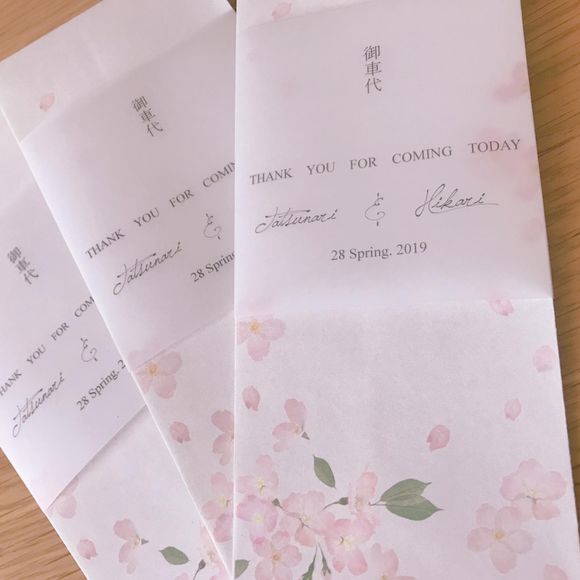 御車代
THANK YOU FOR COMING TODAY
Tatsunari & Hikari
28 Spring. 2019
御車代
THANK YOU FOR COMIN
Tatsunari &
28 Sprin
御車代
HANK YOU FOR COM
Tatsunari &
28 Spring. 2